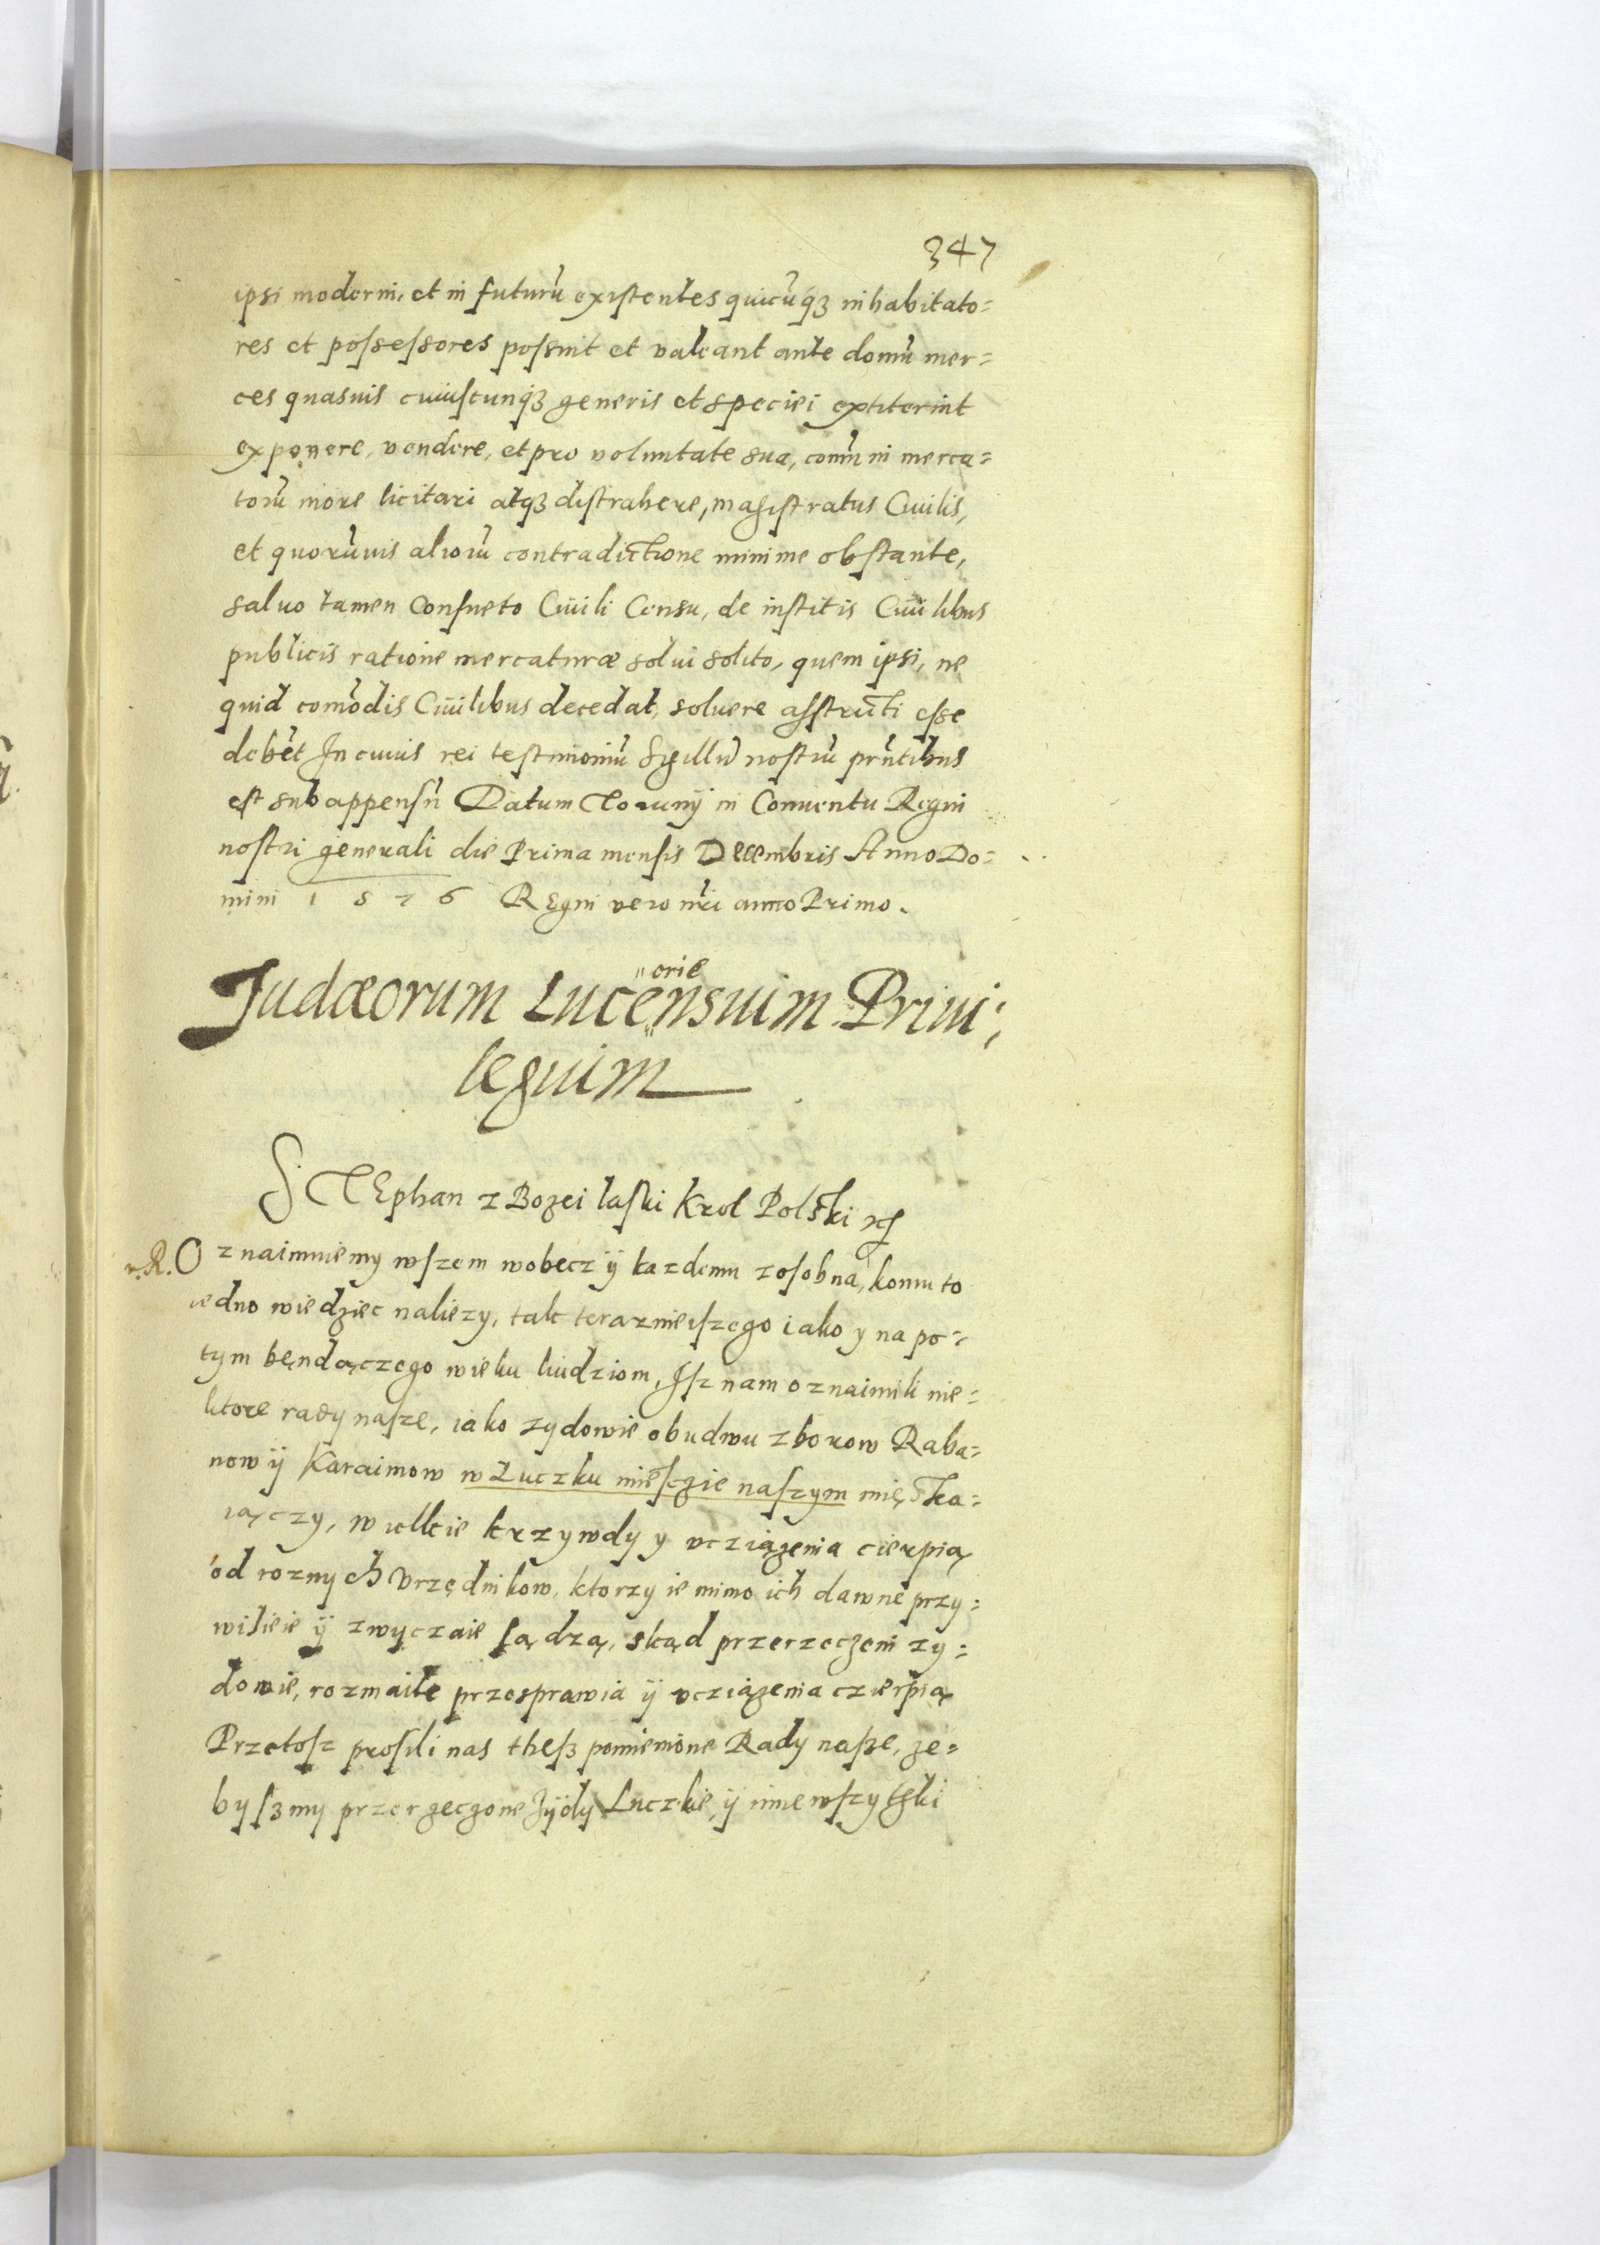 347
ipsi moderni, et in futurũ existentes quicũq́ʒ inhabitato=
res et possessores possint et valeant ante domũ mer=
ces quasuis cuiuscunq́ʒ generis et speciei extiterint
exponere, vendere, et pro voluntate sua, comũni merca=
torũ more licitari atqʒ distrahere, magistratus Ciuilis,
et quorũuis aliorũ contradictione minime obstante,
saluo tamen Consueto Ciuili Censu, de institis Ciuilibus
publicis ratione mercaturæ solui solito, quem ipsi, ne
quid comõdis Ciuilibus decedat, soluere asstricti esse
debẽt In cuius rei testimoniũ Sigillũ nostrũ prñtibus
est subappensũ Datum Torunÿ in Conuentu Regni
nostri generali die Prima mensis Decembris Anno Do=
mini 1576 Regni vero nr̃i anno Primo.
orie
Judæorum Lucensuim Priui;
leguim
STEphan z Bozei laski Krol Polski
v. R. Oznaimuiemy wszem wobecz ÿ kazdemu zosobna, komu to
iedno wiedziec naliezy, tak teraznieiszego iako y na po=
tym bęndączego wieku liudziom, Isz nam oznaimili nie=
ktore rady nasze, iako zydowie obudwu zborow Raba=
now ÿ Karaimow w Łuczku miesczie naszym mięska=
iączy, wielkie krzywdy y vcziązenia cierpią
od roznych Vrzędnikow, ktorzy ie mimo ich dawne przy=
wilieie ÿ zwyczaie sądzą, skąd przerzeczeni zy=
dowie, rozmaite przesprawia ÿ vcziązenia czierpią
Przetosz prosili nas thesz pomienione Rady nasze, ze=
byszmy przerzeczone Zÿdy Luczkie, ÿ inne wszytzki